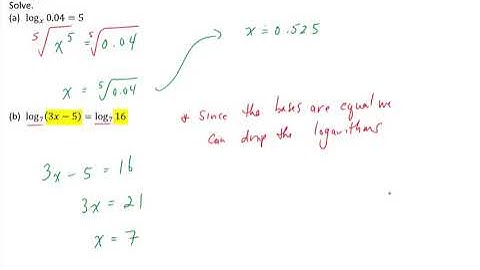 Solve.
(a) logₓ 0.04 = 5
⁵√x⁵ = ⁵√0.04
x = ⁵√0.04
x ≐ 0.525
(b) log₇(3x − 5) = log₇ 16
* Since the bases are equal we
can drop the logarithms
3x − 5 = 16
3x = 21
x = 7